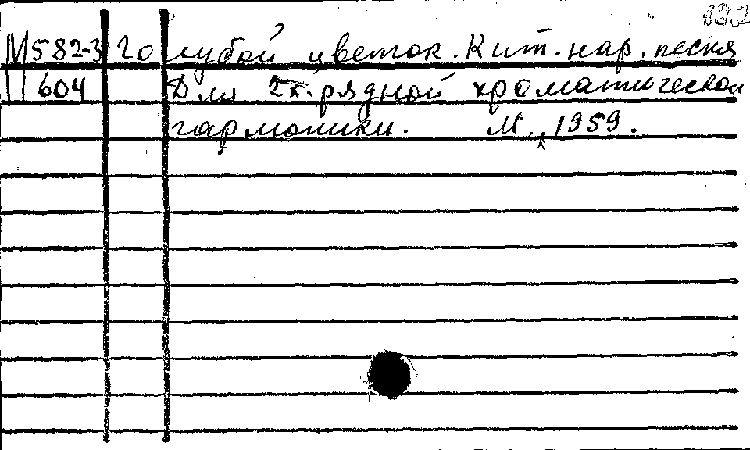 М582-3 Голубой цветок. Кит. нар. песня
604 Для 2х. рядной хроматической
гармоники. М., 1959.